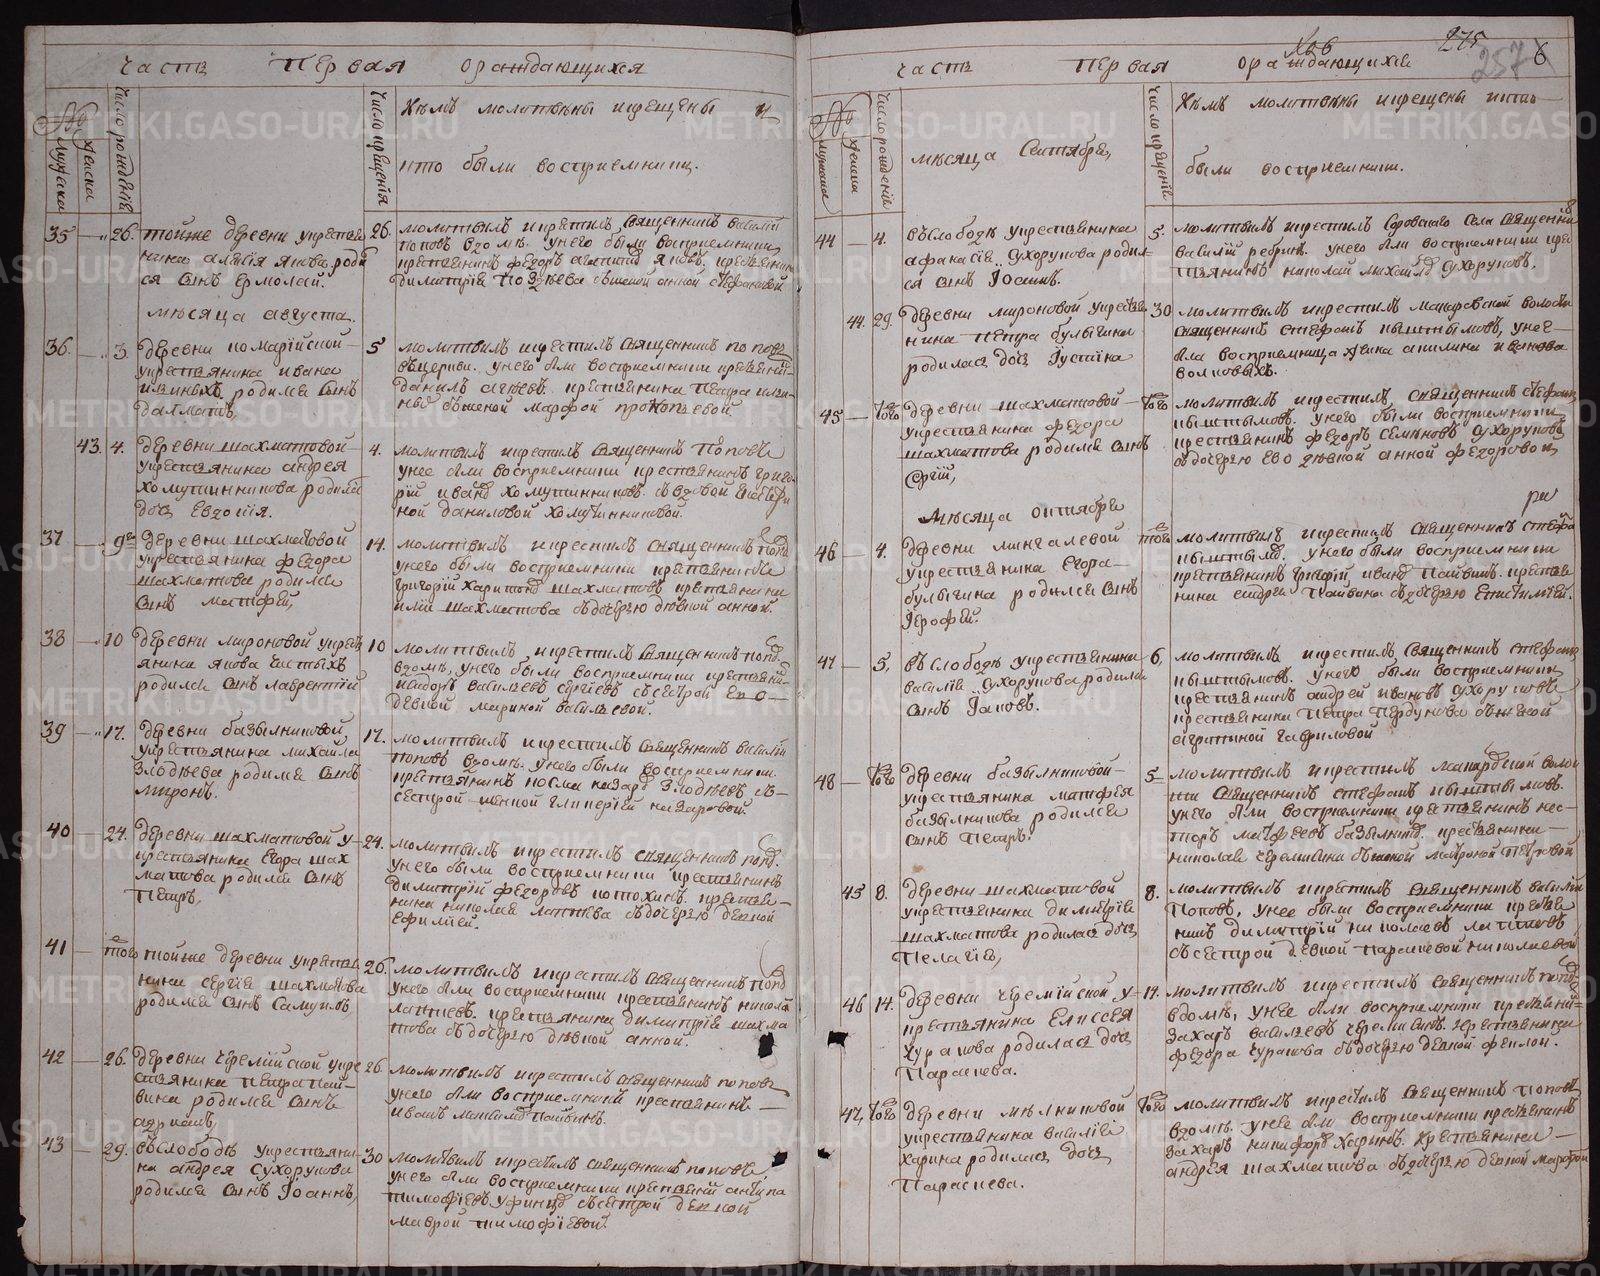 часть первая о раждающихся
№
мужеска
женска
число рождения
число крещенїя
Кѣмъ молитвены и крещены и
кто были восприемники.
35 26. тойже деревни у крестья
нина алеѯїя якова роди
ся сынъ ермолай.
26. молитвилъ и крестилъ священникъ василїй
поповъ вдомѣ. унего были восприемники
крестьянинъ федоръ яковъ, крестьянина
димитрїя позд҃ева сженой анной стефановой
мѣсяца августа.
36. 3. деревни комарїйской
у крестьянина ивана
родился сынъ
далматъ,
5 молитвилъ и крестилъ священникъ поповъ
вцеркви. унего были восприемники
данилъ агѣевъ. крестьянина петра
сженой марфой прокопьевой
43. 4. деревни шахматовой
у крестьянина андрея
холкушинникова родилась
дочь евдокїя.
4. молитвилъ и крестилъ священникъ поповъ
унее были восприемники крестьянинъ григо
рїй иванъ сvдовой екатери
ной даниловой
37 9го деревни шахматовой
у крестьянина федора
шахматова родился
сынъ матфей,
14. молитвилъ и крестилъ священникъ попо
унего были восприемники крестьянинъ
григорїй харитонъ шахматовъ крестьянина
илїи шахматова сдочерью дѣвкой анной.
38 10 деревни мироновой у кресть
янина якова чистыхъ
родился сынъ лаврентїй
10 молитвилъ и крестилъ священникъ попо
вдомѣ, унего были восприемники
васильевъ сергїевъ ссестрой его
девкой мариной васильевой.
39 17. деревни базылниковой
у крестьянина михайла
злодѣева родился сынъ
миронъ.
17. молитвилъ и крестилъ священникъ василїй
поповъ вдомѣ. унего были восприемники
крестьянинъ козма назаръ злодѣевъ с
сестрой женкой гликерїей назаровой.
40 24. деревни шахматовой у
крестьянина егора шах
матова родился сынъ
петръ,
24. молитвилъ и крестилъ священникъ попо.
унего были восприемники крестьянинъ
димитрїй федоровъ потохинъ. крестья
нина николая лаптева сдочерью девкой
ефимїей.
41 того тойже деревни у крестья
нина сергїя шахматова
родился сынъ самуилъ,
26. молитвилъ и крестилъ священникъ попо
унего были восприемники крестьянинъ никола
лаптевъ. крестьянина димитрїя шахма
това сдочерью дѣвкой анной.
42 26. деревни черемїйской у кре
стьянина петра пай
вина родился сынъ
адрїанъ,
26 молитвилъ и крестилъ священникъ поповъ
унего были восприемники крестьянинъ
иванъ пайвинъ.
43 29. вслободѣ у крестьяни
на андрея сухорукова
родился сынъ їоаннъ,
30 молитвилъ и крестилъ священникъ поповъ,
унего были восприемники крестьянинъ антипа
тимофїевъ ссестрой девкой
маврой тимофїевой.
часть первая о раждающихся
275
257
6
№
мужеска
женска
число рожденїй
мѣсяца Сентября,
число крещенїя
Кѣмъ молитвены и крещены и кто
были восприемники.
44 4. вслободѣ у крестьянина
афанасїя сухорукова родил
ся сынъ їоаннъ.
5. молитвилъ и крестилъ села священни
василїй унего были восприемники кре
стьянинъ николай михайлъ сухоруковъ.
44. 29. деревни мироновой у крестья
нина петра булыгина
родилась дочь їустина
30 молитвилъ и крестилъ макаровской волости
священникъ стефанъ пыштымовъ, унее
была восприемница жена акилина иванова
волковыхъ.
45 того деревни шахматовой
у крестьянина федора
шахматова родился сынъ
сергїй,
того молитвилъ и крестилъ священникъ стефанъ
пыштымовъ. унего были восприемники
крестьянинъ федоръ семѣновъ сухоруковъ
сдочерью его дѣвкой анной федоровой
Мѣсяца октября
46 4. деревни мингалевой
у крестьянина егора
булыгина родился сынъ
їерофей.
того молитвилъ и крестилъ священникъ стефа
пыштым. унего были восприемники
крестьянинъ григорїй иванъ пайвинъ. крестья
нина андрея пайвина сдочерью епистимїей.
47 5, вслободѣ у крестьянина
василїя сухорукова родился
сынъ їаковъ.
6, молитвилъ и крестилъ священникъ стефанъ
пыштымовъ. унего были восприемники
крестьянинъ андрей ивановъ сухоруковъ
крестьянина петра пердунова сженой
агриппиной гавриловой
48 того деревни базылниковой
у крестьянина матфея
базылникова родился
сынъ петръ.
5 молитвилъ и крестилъ макаровской воло
сти священникъ стефанъ пыштымовъ.
унего были восприемники крестьянинъ нес
торъ матфеевъ базылник. крестьянина
николая черемисина сженой матроной петровой
45 8. деревни шахматовой
у крестьянина димитрїя
шахматова родилась дочь
пелагїя,
8. молитвилъ и крестилъ священникъ василїй
поповъ, унее были восприемники крестья
нинъ димитрїй николаевъ лаптевъ
ссестрой девкой парасковой николаевой
46 14. деревни черемїйской у
крестьянина елисея
чуракова родилась дочь
параскева.
14. молитвилъ и крестилъ священникъ попо
вдомѣ, унее были восприемники крестьяни
захаръ васильевъ крестьянина
федора чуракова сдочерью девкой феклой.
47, того деревни мѣлниковой
у крестьянина василїя
харина родилась дочь
параскева.
того молитвилъ и крестилъ священникъ поповъ
вдомѣ. унее были восприемники крестьянинъ
захаръ никифоръ харинъ. крестьянина
андрея шахматова сдочерью девкой марфой